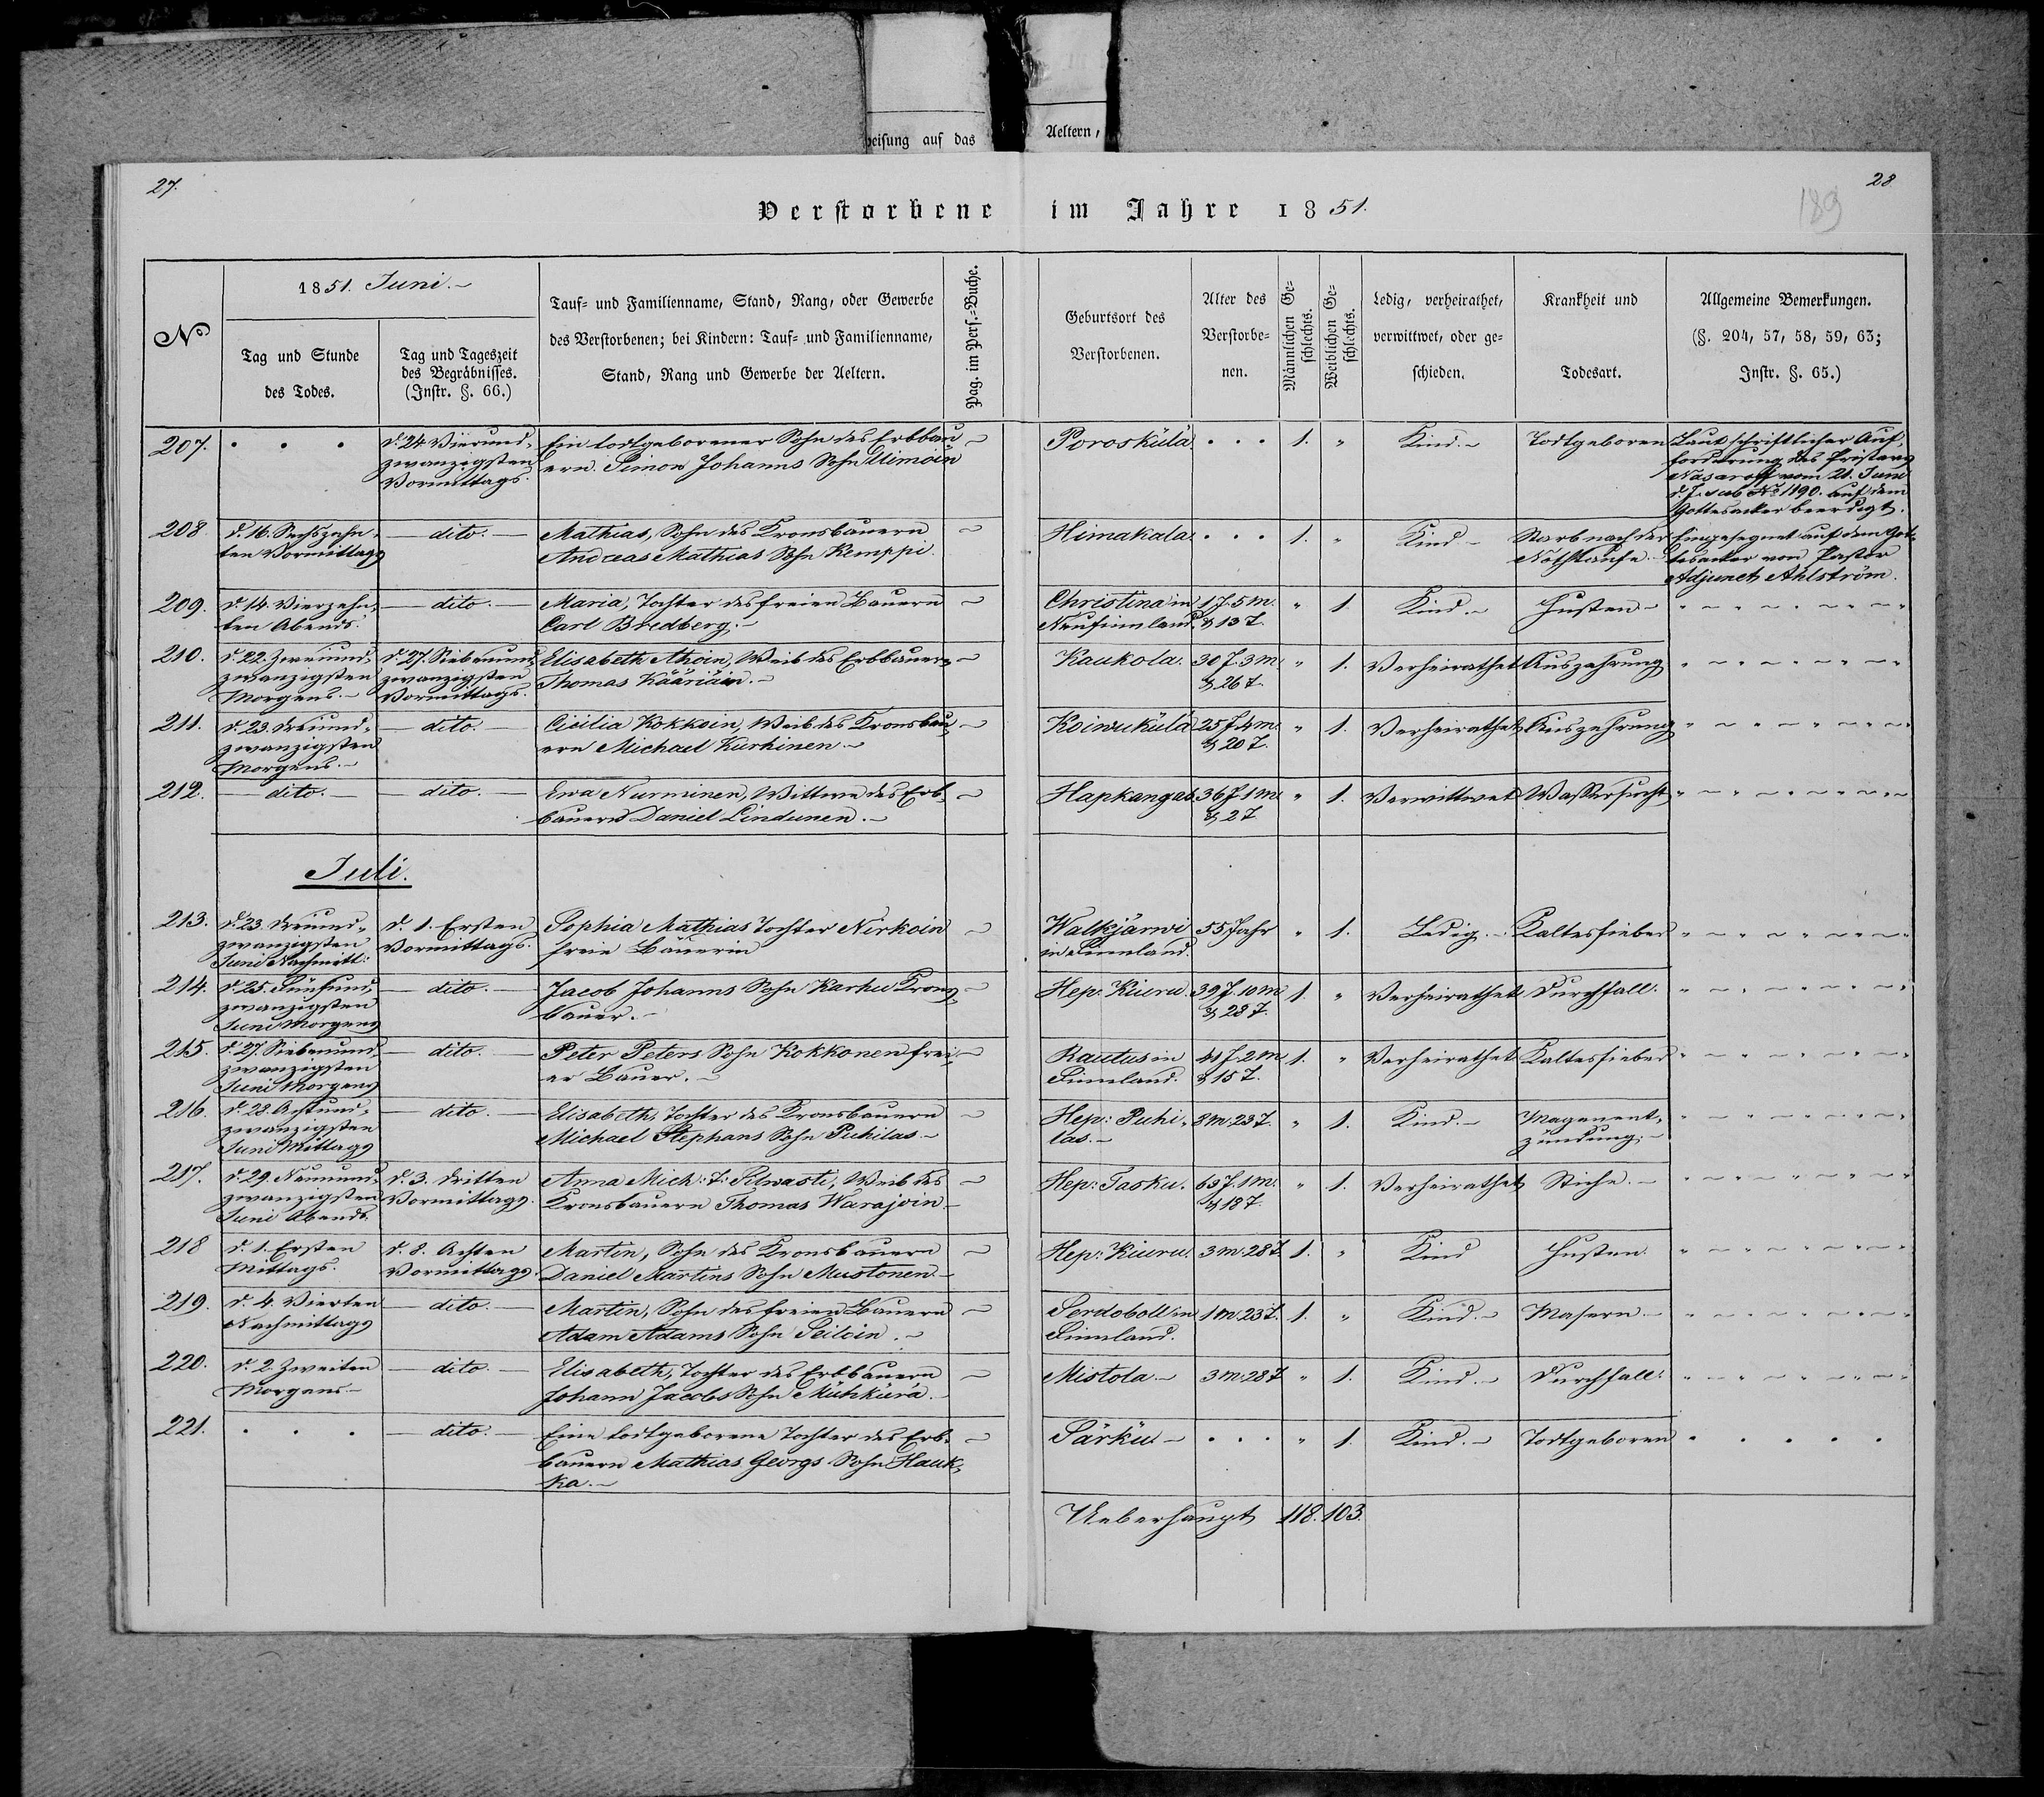 weisung auf das
Aeltern,
27.
28
189
Verstorbene im Jahre 1851.
No
1851. Juni.
Tag und Stunde
des Todes.
Tag und Tageszeit
des Begräbnisses.
(Instr. §. 66.)
Tauf- und Familienname, Stand, Rang, oder Gewerbe
des Verstorbenen; bei Kindern: Tauf- und Familienname,
Stand, Rang und Gewerbe der Aeltern.
Pag. im Pers.-Buche.
Geburtsort des
Verstorbenen.
Alter des
Verstorbe-
nen.
Männlichen Ge-
schlechts.
Weiblichen Ge-
schlechts.
Ledig, verheirathet,
verwittwet, oder ge-
schieden.
Krankheit und
Todesart.
Allgemeine Bemerkungen.
(§. 204, 57, 58, 59, 63;
Instr. §. 65.)
207.
d. 24 Vierund-
zwanzigsten
Vormittags.
Ein todtgeborener Sohn des Erbbau-
ern Simon Johanns Sohn Uimoin
Porosküla
1.
Kind.
Todtgeboren
Laut schriftlicher Auf-
forderung des Pristavs
Nasaroff vom 21. Juni
d. J. sub No 1190. auf dem
Gottesacker beerdigt.
208
d. 16. Sechszehn-
ten Vormittags
dito.
Mathias, Sohn des Kronsbauern
Andreas Mathias Sohn Kemppi.
Himakala.
1.
Kind
Starb nach der
Nothtaufe.
Eingesegnet auf dem Got-
tesacker von Pastor
Adjunct Ahlström.
209.
d. 14. Vierzehn-
ten Abends.
dito.
Maria, Tochter des freien Bauern
Carl Bredberg.
Christina in
Neufinnland.
1 J. 5 m.
& 13 T.
1.
Kind.
Husten
210.
d. 22. Zweiund-
zwanzigsten
Morgens.
d. 27. Siebenund-
zwanzigsten
Vormittags.
Elisabeth Ahoin, Weib des Erbbauern
Thomas Kääriäin.
Kaukola.
30 J. 3 m.
& 26 T.
1.
Verheirathet
Auszehrung
211.
d. 23. Dreiund-
zwanzigsten
Morgens.
dito.
Cicilia Kokkoin, Weib des Kronsbau-
ern Michael Kurhinen
Koiwuküla
25 J. 4 m.
& 20 T.
1.
Verheirathet
Auszehrung
212.
dito.
dito.
Ewa Nurminen, Wittwe des Erb-
bauern Daniel Lindunen.
Hapkangas.
36 J. 1 m.
& 2 T.
1.
Verwittwet
Wassersucht
Juli.
213.
d. 23. Dreiund-
zwanzigsten
Juni Nachmitt:
d. 1. Ersten
Vormittags.
Sophia Mathias Tochter Nirkoin
freie Bäuerin
Walkjärwi
in Finnland.
55 Jahr
1.
Ledig.
Kaltesfieber
214.
d. 25. Fünfund-
zwanzigsten
Juni Morgens
dito.
Jacob Johanns Sohn Karhu Krons-
bauer.
Hep: Kiuru.
39 J. 10 m
& 28 T.
1.
Verheirathet
Durchfall.
215.
d. 27. Siebenund-
zwanzigsten
Juni Morgens
dito.
Peter Peters Sohn Kokkonen frei-
er Bauer.
Rautus in
Finnland.
41 J. 2 m
& 15 T.
1.
Verheirathet
Kaltesfieber
216.
d. 28. Achtund-
zwanzigsten
Juni Mittags
dito.
Elisabeth, Tochter des Kronsbauern
Michael Stephans Sohn Puhilas
Hep: Puhi-
las.
8 m. 23 T.
1.
Kind.
Magenent-
zündung.
217.
d. 29. Neunund-
zwanzigsten
Juni Abends.
d. 3. Dritten
Vormittags.
Anna Mich: T: Pilwasti, Weib des
Kronsbauern Thomas Warajoin.
Hep: Tasku.
63 J. 1 m.
& 18 T.
1.
Verheirathet
Stiche.
218
d. 1. Ersten
Mittags.
d. 8. Achten
Vormittags.
Martin, Sohn des Kronsbauern
Daniel Martins Sohn Mustonen.
Hep: Kiuru.
3 m. 28 T.
1.
Kind
Husten.
219.
d. 4. Vierten
Nachmittags
dito.
Martin, Sohn des freien Bauern
Adam Adams Sohn Seiloin.
Serdoboll in
Finnland.
1 m. 23 T.
1.
Kind.
Masern.
220.
d. 2. Zweiten
Morgens
dito.
Elisabeth, Tochter des Erbbauern
Johann Jacobs Sohn Mühkürä.
Mistola
3 m. 28 T
1.
Kind.
Durchfall.
221.
dito.
Eine todtgeborene Tochter des Erb-
bauern Mathias Georgs Sohn Hauk-
ka.
Särkü
1.
Kind.
Todtgeboren
Ueberhaupt 118. 103.